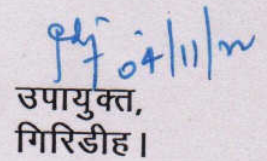 04/11/22
उपायुक्त,
गिरिडीह।